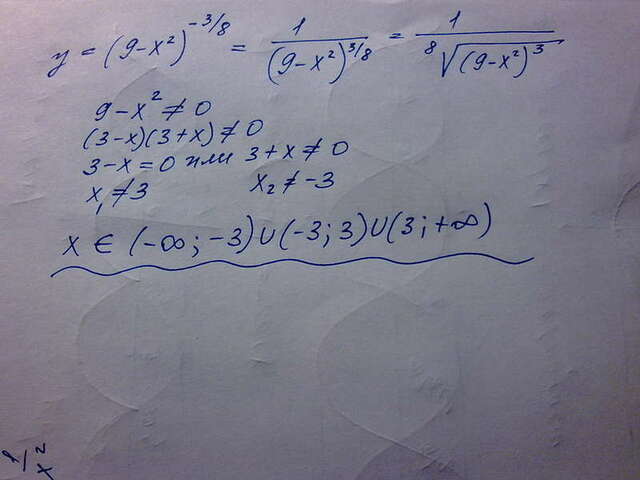 y = (9-x²)^{-3/8} = 1/(9-x²)^{3/8} = 1/⁸√((9-x²)³)
9-x² ≠ 0
(3-x)(3+x) ≠ 0
3-x = 0 или 3+x ≠ 0
x₁ ≠ 3 x₂ ≠ -3
x ∈ (-∞; -3) ∪ (-3; 3) ∪ (3; +∞)
1/x²